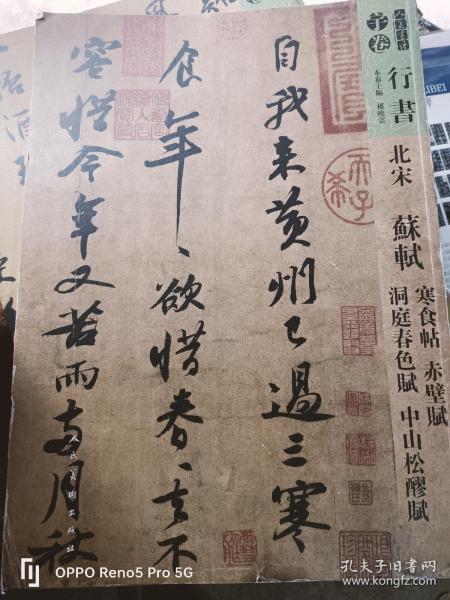 自我来黄州已過三寒
食年、欲惜春、去不
容惜今年又苦雨两月秋
行書
本卷主編 孫曉雲
北宋 蘇軾
寒食帖 赤壁賦
洞庭春色賦 中山松醪賦
人民美術出版社
天子
OPPO Reno5 Pro 5G
孔夫子旧书网
kongfz.com